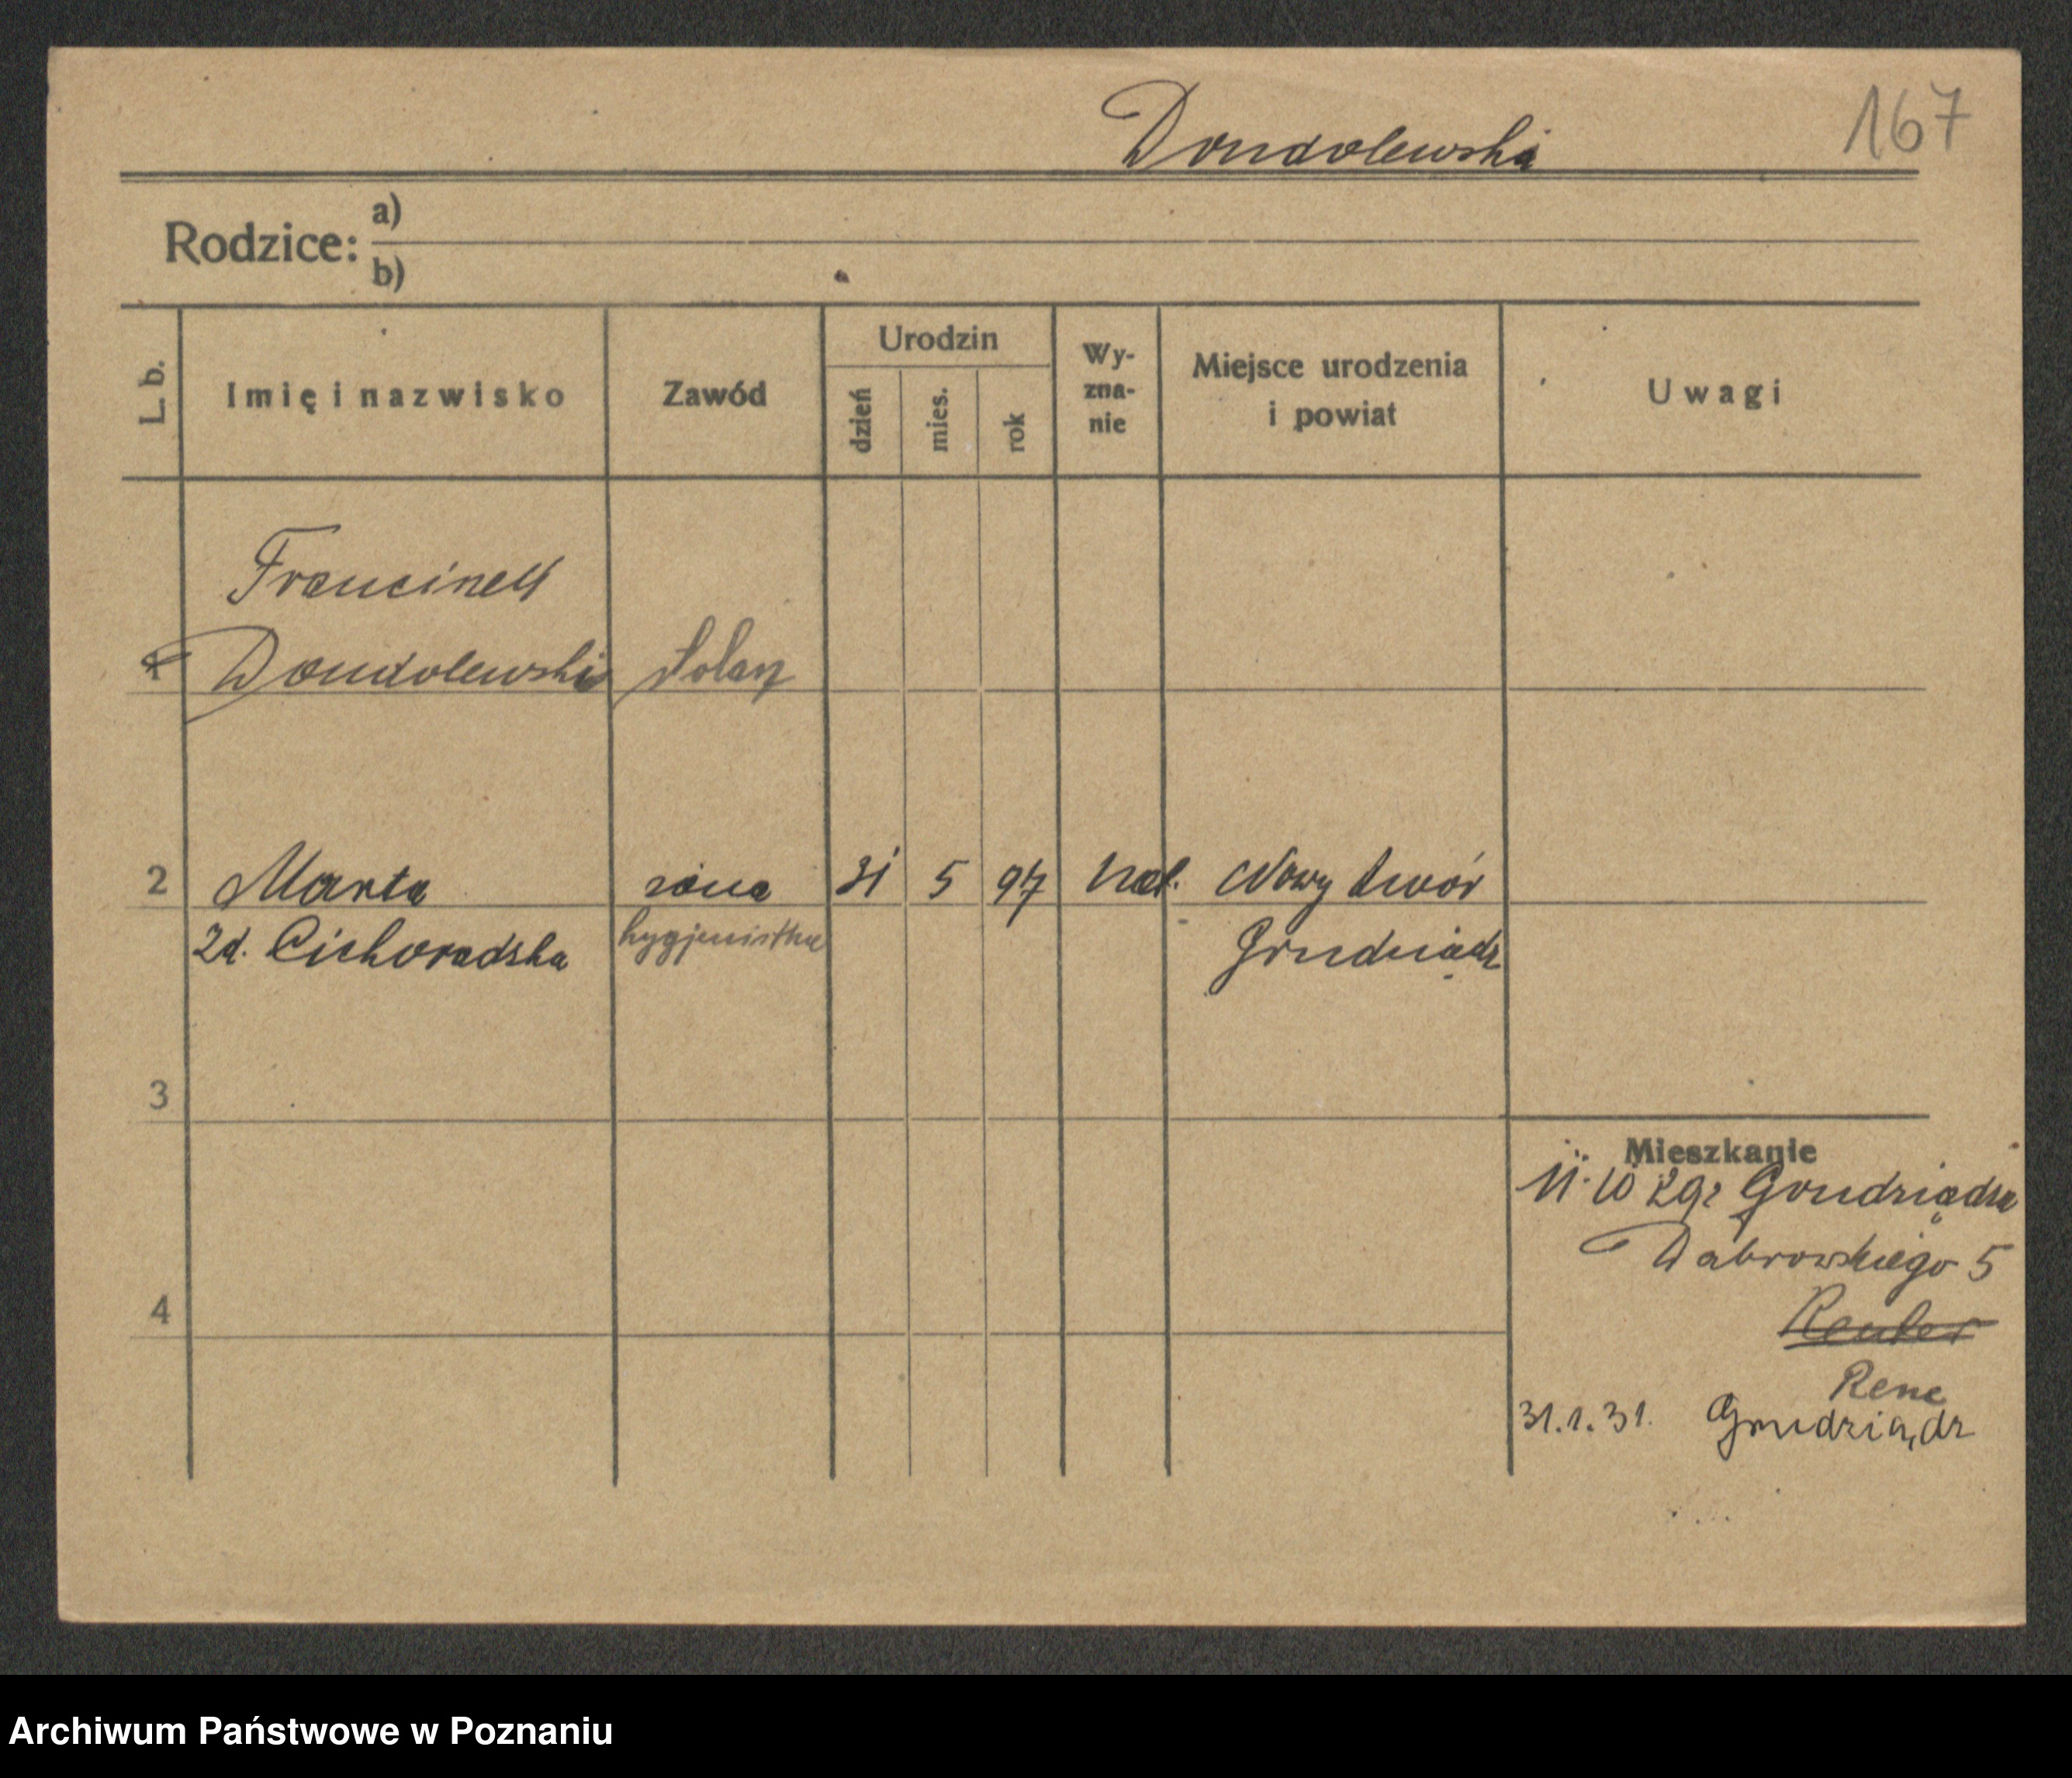 Dondolewski
167
Rodzice: a)
b)
L. b.
Imię i nazwisko
Zawód
Urodzin
dzień
mies.
rok
Wy-
zna-
nie
Miejsce urodzenia
i powiat
Uwagi
Franciszek
1 Dondolewski
2 Marta żona 31 5 97 kat. Nowy dwór
zd. Cichoradska hygjenistka Grudziądz
3
Mieszkanie
11. 10 29 z Grudziądza
Dąbrowskiego 5
4
Reuter
Rene
31.1.31. Grudziądz
Archiwum Państwowe w Poznaniu